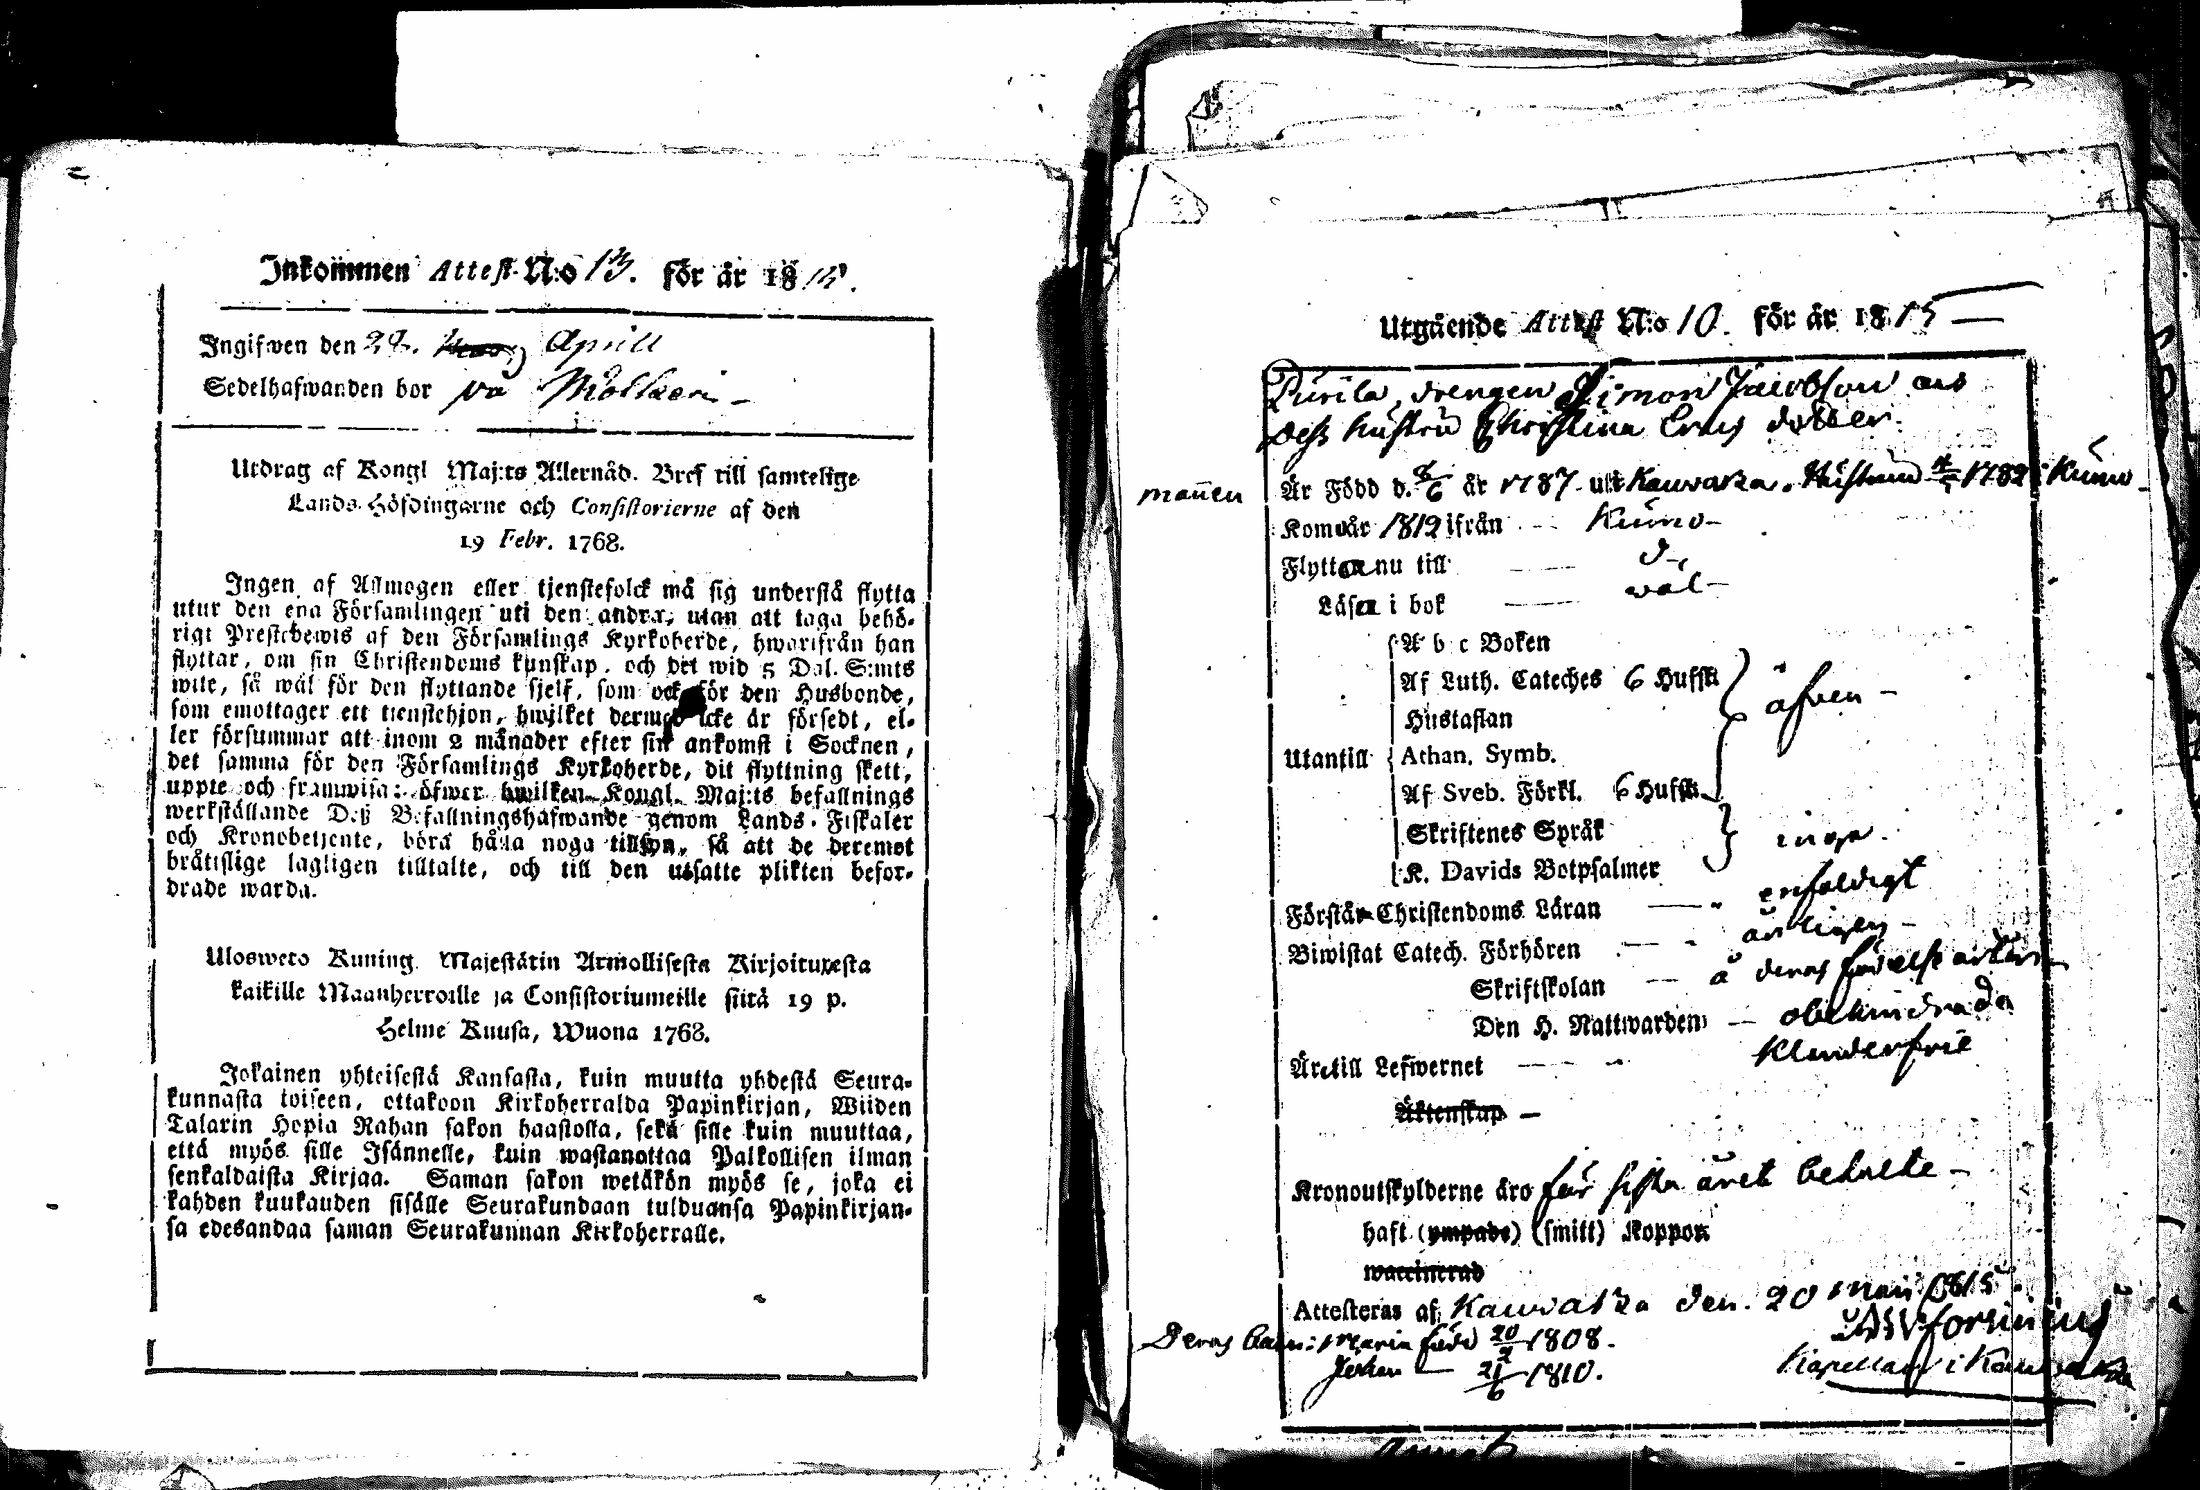 Inkommen Attest N:o 13. för år 1815.
Ingifwen den 28. April
Sedelhafwanden bor
Utdrag af Kongl Maj:ts Allernåd. Bref till samtelige
Lands-Höfdingarne och Consistorierne af den
19 Febr. 1768.
Ingen af Allmogen eller tjenstefolck må sig understå flytta
utur den ena Församlingen uti den andra, utan att taga behö-
rigt Prestebewis af den Församlings Kyrkoherde, hwarifrån han
flyttar, om sin Christendoms kunskap, och det wid 5 Dal. S:mts
wite, så wäl för den flyttande sjelf, som ock för den Husbonde,
som emottager ett tienstehjon, hwilket dermed icke är försedt, el-
ler försummar att inom 2 månader efter sin ankomst i Socknen,
det samma för den Församlings Kyrkoherde, dit flyttning skett,
uppte och framwisa: öfwer hwilken Kongl. Maj:ts befallnings
werkställande Deß Befallningshafwande genom Lands-Fiskaler
och Kronobetjente, böra hålla noga tillsyn, så att de deremot
bråttslige lagligen tilltalte, och till den utsatte plikten befor-
drade warda.
Ulosweto Kuning. Majestätin Armollisesta Kirjoituxesta
kaikille Maanherroille ja Consistoriumeille siitä 19 p.
Helme Kuusa, Wuona 1768.
Jokainen yhteisestä Kansasta, kuin muutta yhdestä Seura-
kunnasta toiseen, ottakoon Kirkoherralda Papinkirjan, Wiiden
Talarin Hopia Rahan sakon haastolla, sekä sille kuin muuttaa,
että myös sille Isännelle, kuin wastanottaa Palkollisen ilman
senkaldaista Kirjaa. Saman sakon wetäkön myös se, joka ei
kahden kuukauden sisälle Seurakundaan tulduansa Papinkirjan-
sa edesandaa saman Seurakunnan Kirkoherralle.
Utgående Attest N:o 10. för år 1815
Purila, drengen Simon Jacobsson och
deß hustru Christina Ers dotter.
mannen Är Född d. 8/6 år 1787 uti Kauvatza. Hustrun 1782 i Kumo
Komo år 1812 ifrån Kumo
Flytta nu till d-
Läsa i bok wäl
A b c Boken
Af Luth. Cateches 6 Hufst. äfven
Hustaflan
Utantill Athan. Symb.
Af Sveb. Förkl. 6 Hufst.
Skriftenes Språk inga.
K. Davids Botpsalmer
Förstår Christendoms Läran enfaldigt
Biwistat Catech. Förhören årligen
Skriftskolan å deras orter
Den H. Nattwarden obehindrade
Äro till Lefwernet klanderfrie
Äktenskap
Kronoutskylderne äro för sista året betalte
haft (ympade) (smitt) Koppor
waccinerad
Attesteras af Kauvatza den 20 Maii 1815.
Deras barn: Maria född 20/2 1808.
Johan — 21/6 1810.
Kapellan i Kauvatza